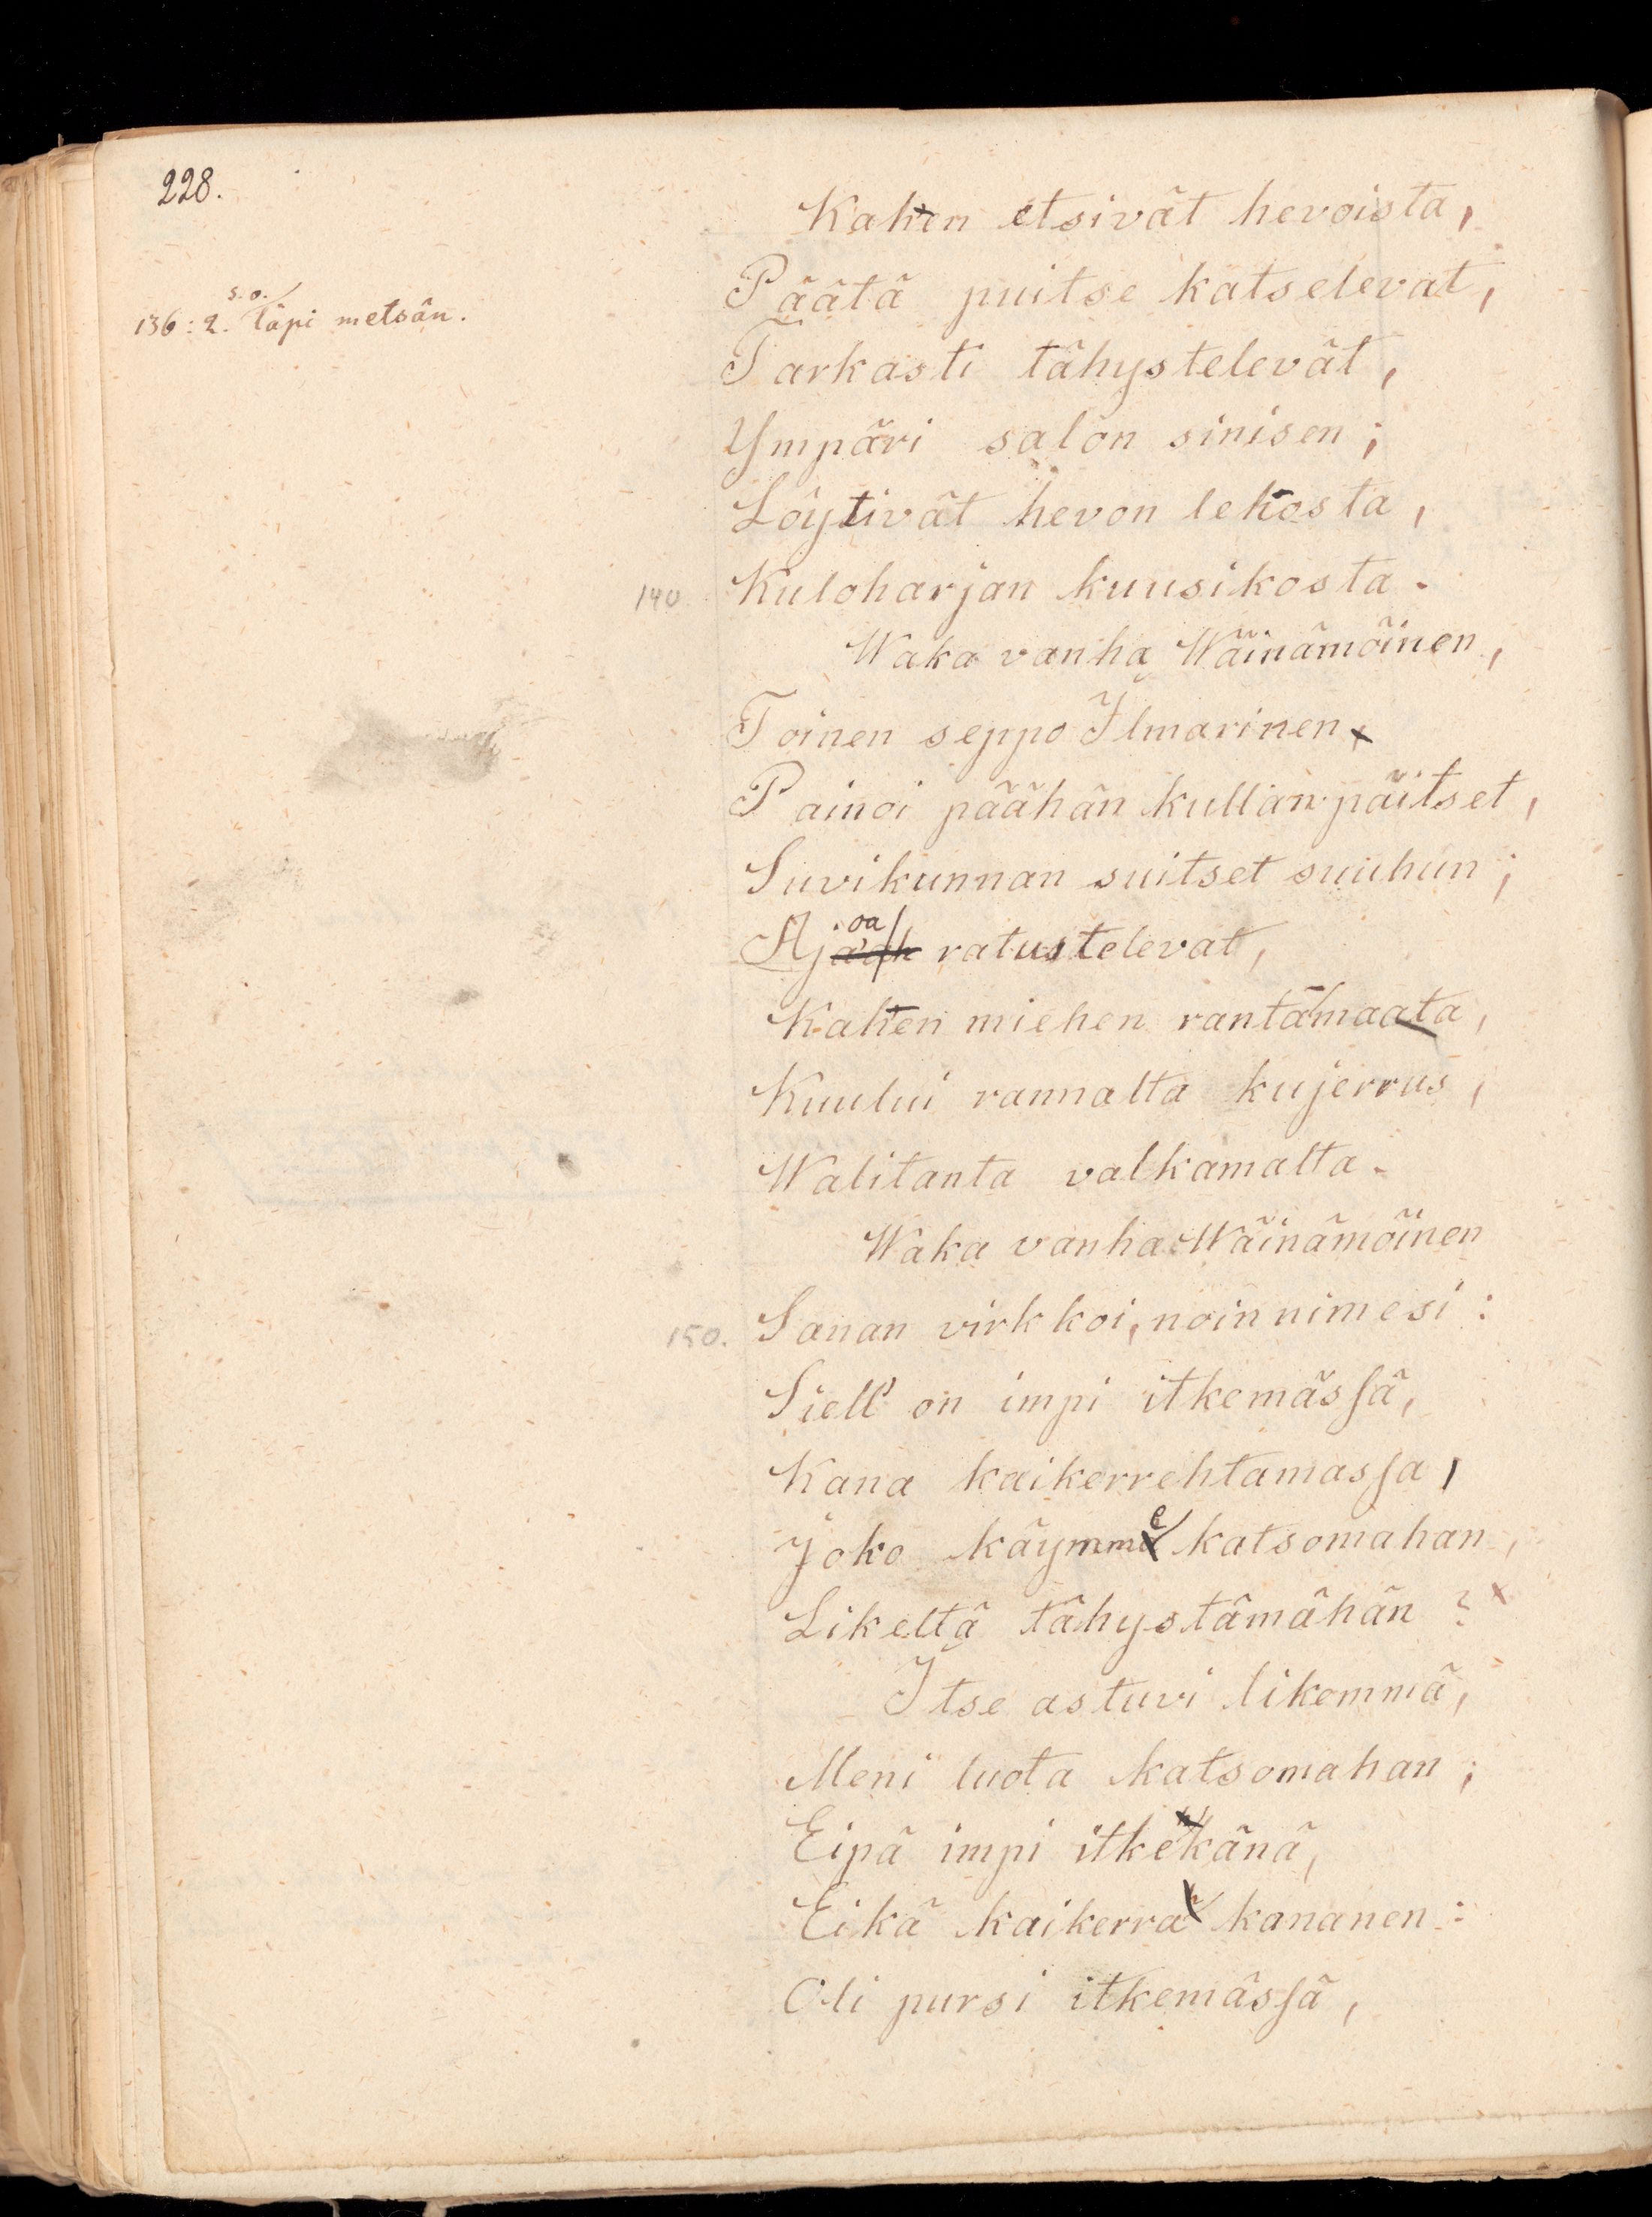 228.
Kahen etsivät hevoista,
Päätä puitse katselevat,
s. o.
136: 2. läpi metsän.
Tarkasti tähystelevät,
Ympäri salon sinisen;
Löytivät hevon lehosta,
140. Kuloharjan kuusikosta.
Waka vanha Wäinämöinen,
Toinen seppo Ilmarinen
Painoi päähän kullanpäitset,
Suvikunnan suitset suuhun;
oa
Aj ratustelevat,
Kahen miehen rantamaata,
Kuului rannalta kujerrus,
Walitanta valkamalta.
Waka vanha Wäinämöinen
150. Sanan virkkoi, noin nimesi:
Siell' on impi itkemässä,
Kana kaikerrehtamassa,
Joko käymme katsomahan,
Likeltä tähystämähän?
Itse astuvi likemmä,
Meni luota katsomahan;
Eipä impi itkekänä,
Eikä kaikerra kananen:
Oli pursi itkemässä,